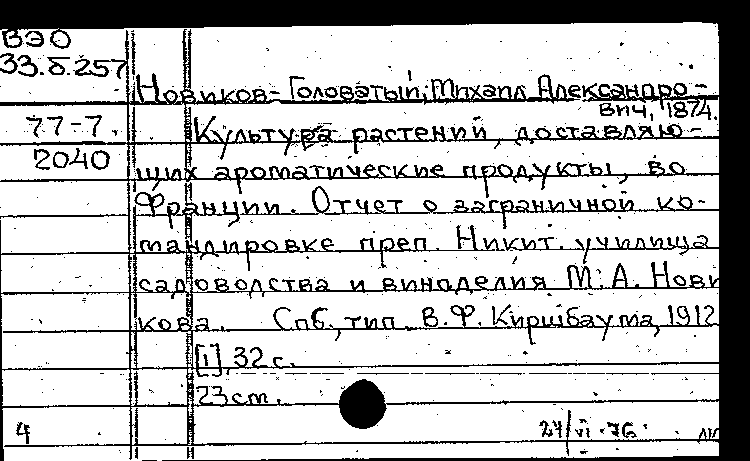 ВЭО
33.б.257
Новиков-Головатый, Михаил Александро-
вич, 1874.
77-7.
2040
Культура растений, доставляю-
щих ароматические продукты, во
Франции. Отчет о заграничной ко-
мандировке преп. Никит. училища
садоводства и виноделия М. А. Нови
кова. Спб., тип. В. Ф. Киршбаума, 1912
[1], 32 с.
23 cm.
4
27/VI-76